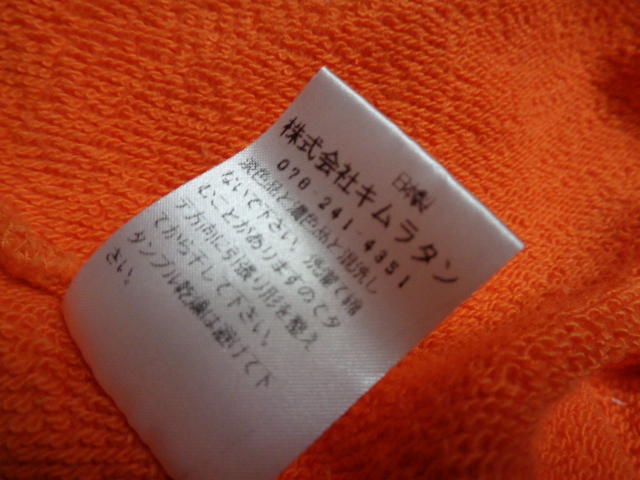 日本製
株式会社キムラタン
078-241-4351
淡色品と濃色品と混洗し
ないで下さい。洗濯で縮
むことがありますのでタ
テ方向に引張り形を整え
てから干して下さい。
タンブル乾燥は避けて下
さい。